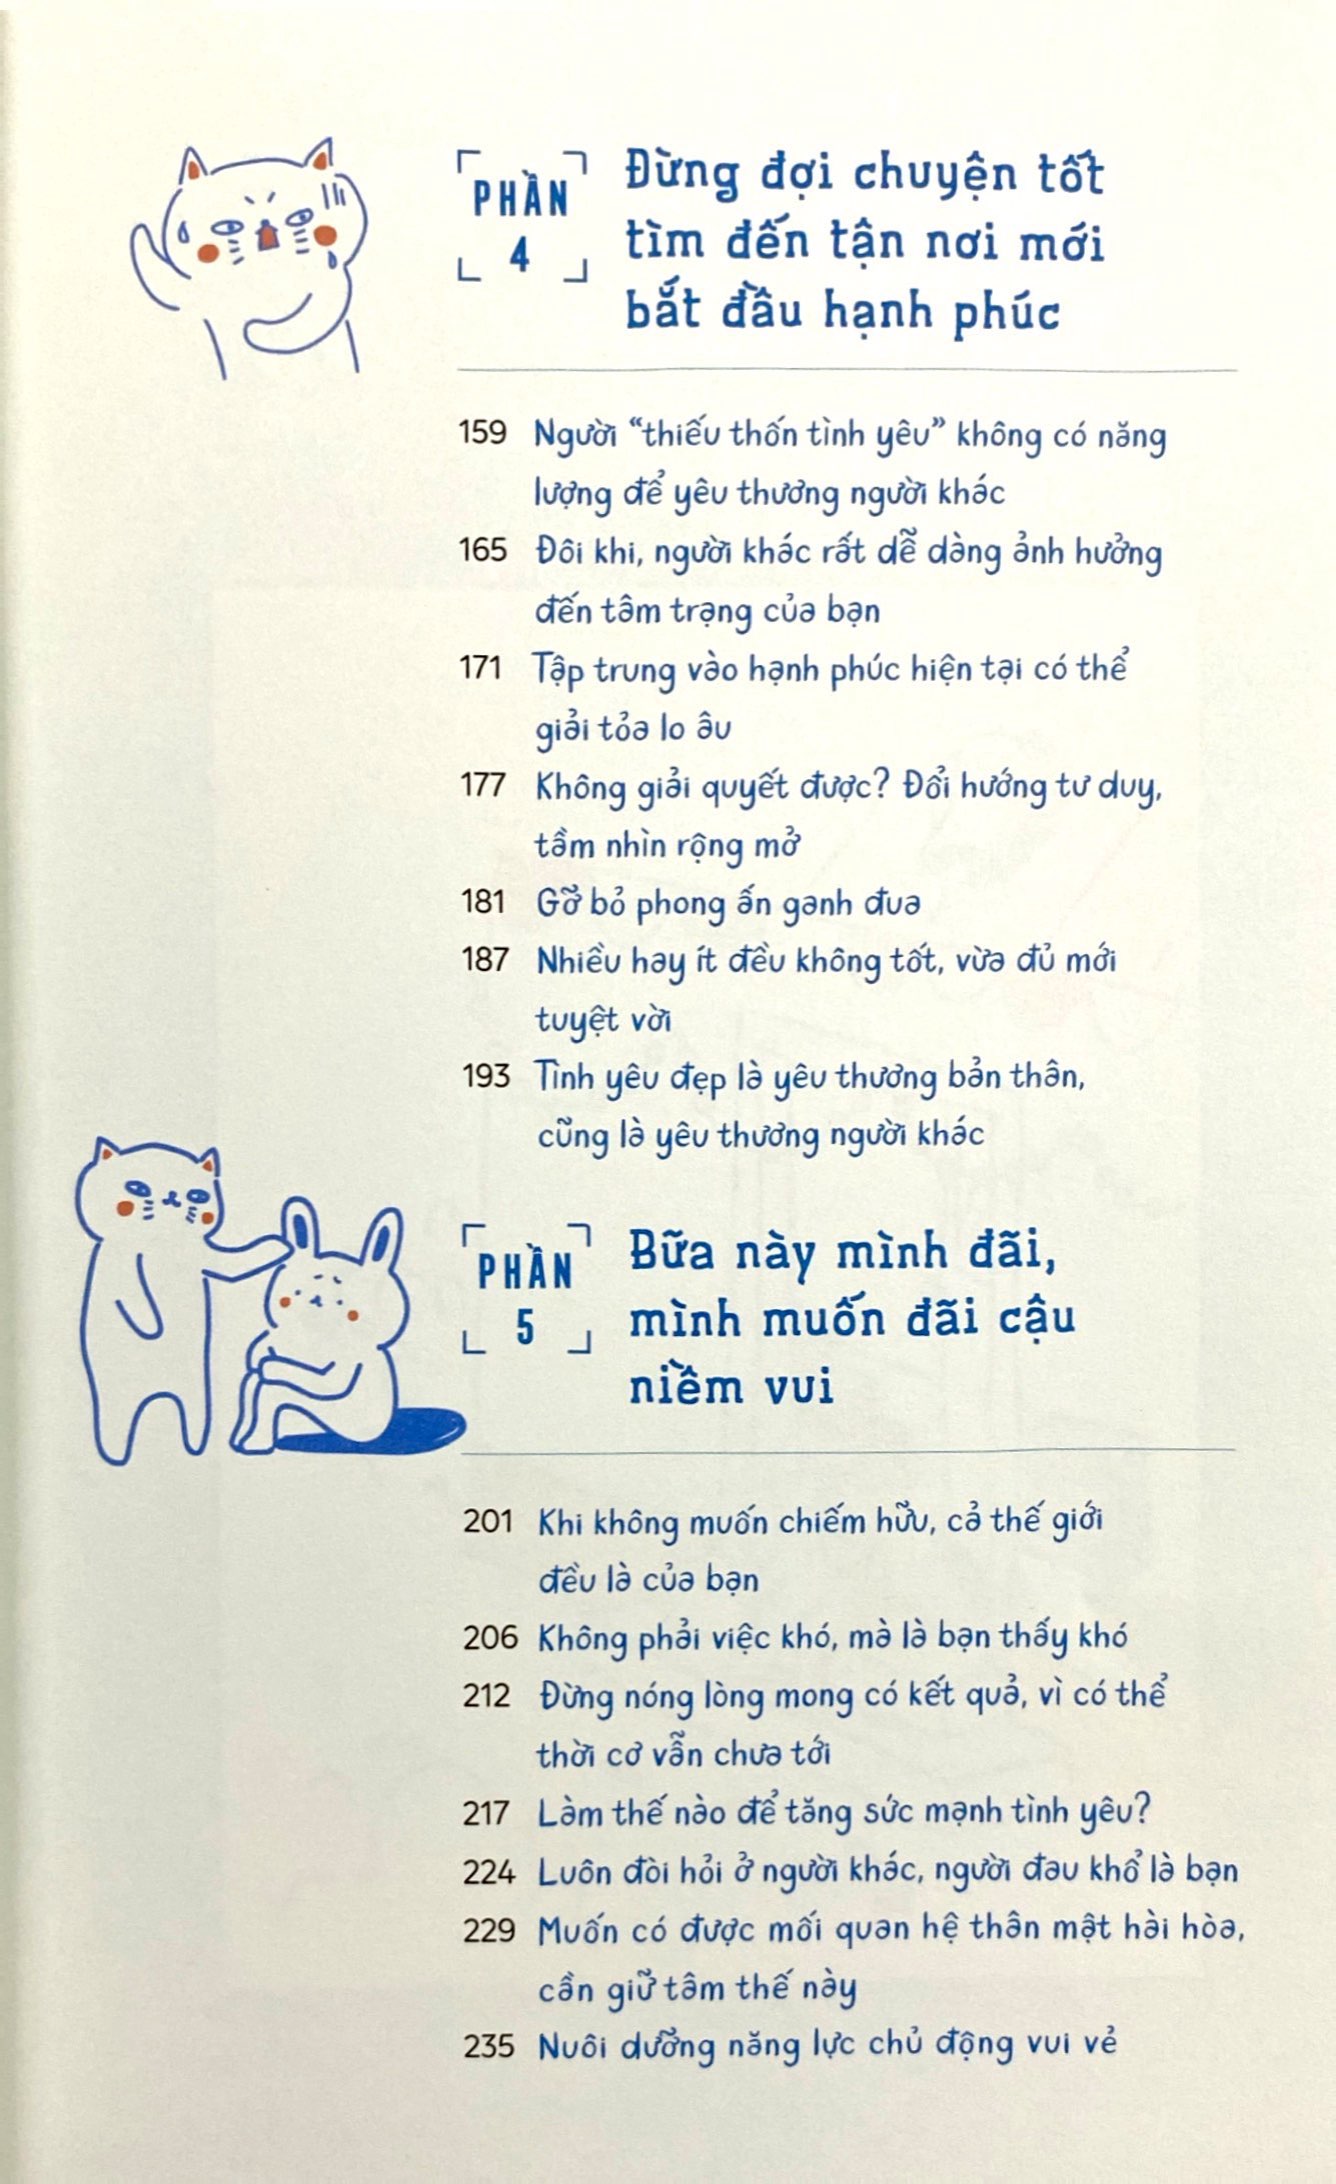 PHẦN
4
Đừng đợi chuyện tốt
tìm đến tận nơi mới
bắt đầu hạnh phúc
159 Người “thiếu thốn tình yêu” không có năng
lượng để yêu thương người khác
165 Đôi khi, người khác rất dễ dàng ảnh hưởng
đến tâm trạng của bạn
171 Tập trung vào hạnh phúc hiện tại có thể
giải tỏa lo âu
177 Không giải quyết được? Đổi hướng tư duy,
tầm nhìn rộng mở
181 Gỡ bỏ phong ấn ganh đua
187 Nhiều hay ít đều không tốt, vừa đủ mới
tuyệt vời
193 Tình yêu đẹp là yêu thương bản thân,
cũng là yêu thương người khác
PHẦN
5
Bữa này mình đãi,
mình muốn đãi cậu
niềm vui
201 Khi không muốn chiếm hữu, cả thế giới
đều là của bạn
206 Không phải việc khó, mà là bạn thấy khó
212 Đừng nóng lòng mong có kết quả, vì có thể
thời cơ vẫn chưa tới
217 Làm thế nào để tăng sức mạnh tình yêu?
224 Luôn đòi hỏi ở người khác, người đau khổ là bạn
229 Muốn có được mối quan hệ thân mật hài hòa,
cần giữ tâm thế này
235 Nuôi dưỡng năng lực chủ động vui vẻ